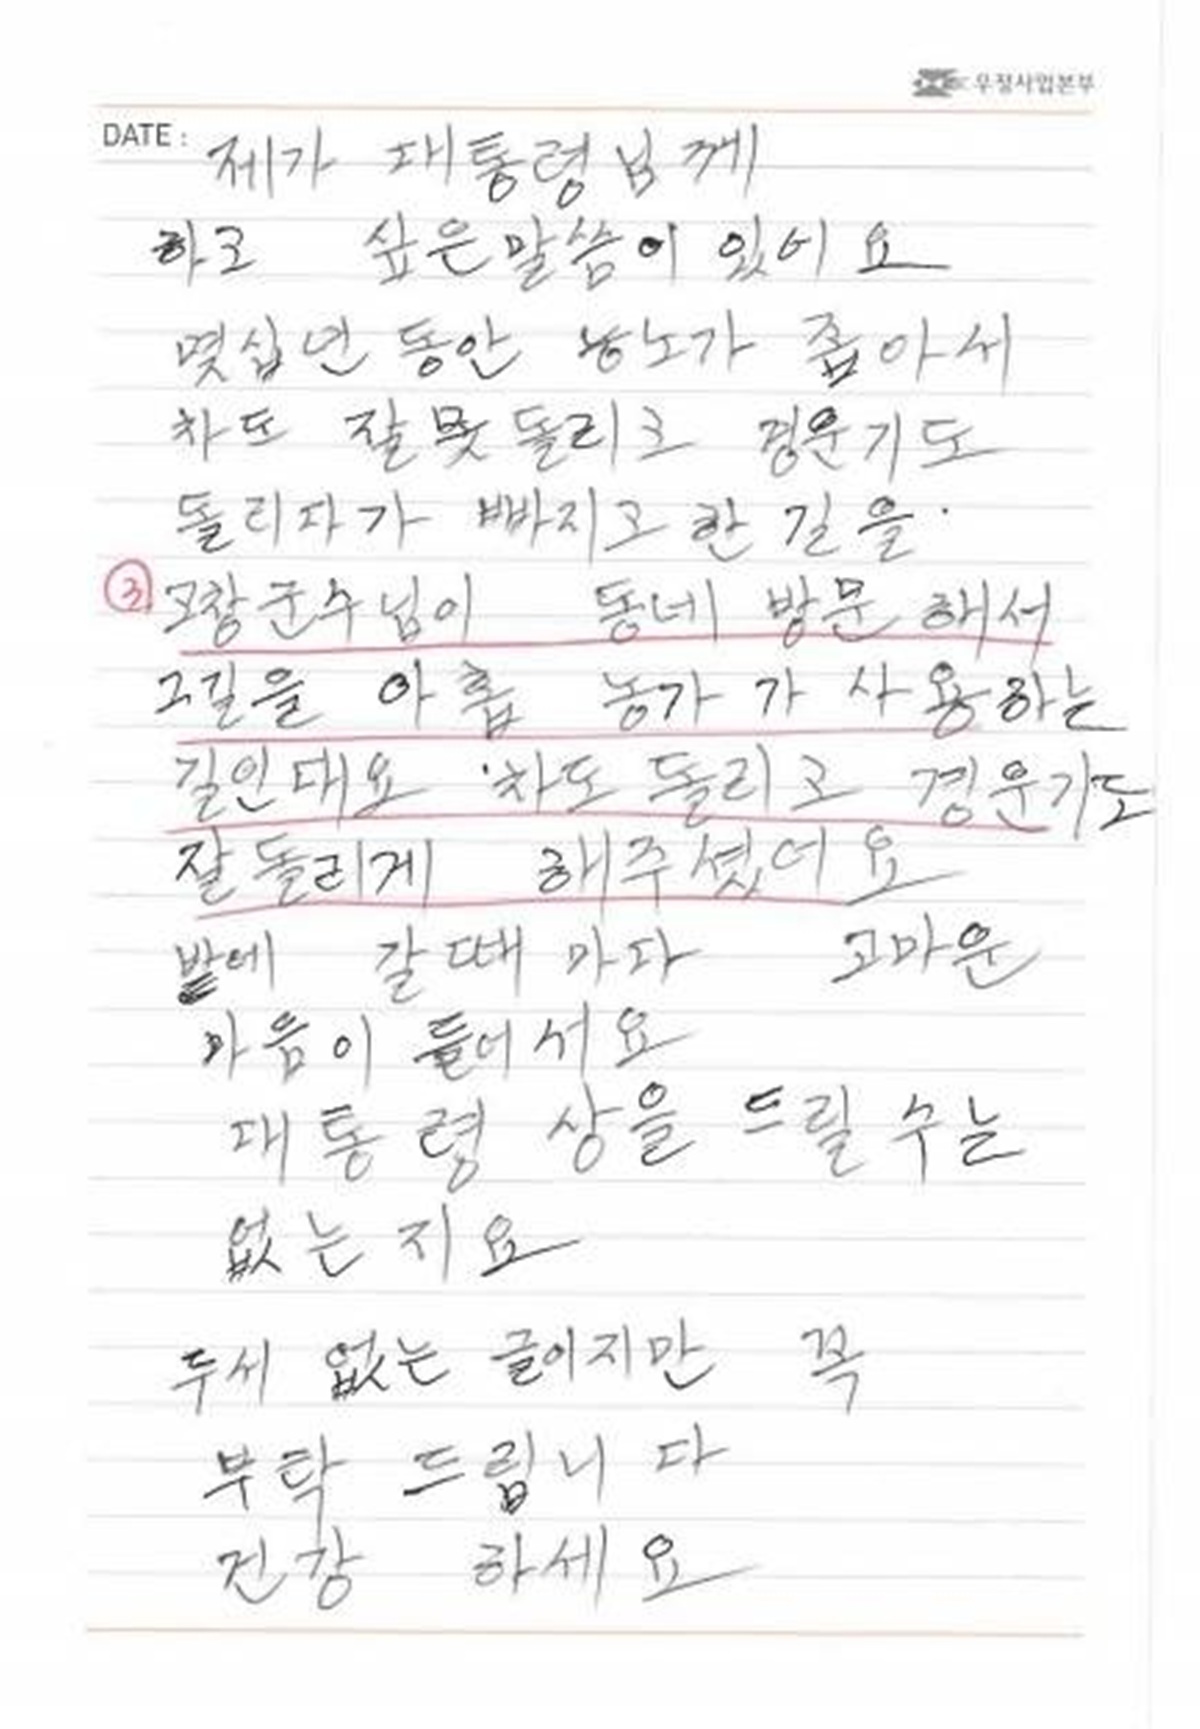 우정사업본부
DATE : 제가 대통령님께
하고 싶은말씀이 있어요
몇십년 동안 농노가 좁아서
차도 잘못돌리고 경운기도
돌리다가 빠지고 한 길을
③ 고창군수님이 동네 방문해서
그길을 아홉 농가가 사용하는
길인대요 차도 돌리고 경운기도
잘돌리게 해주셨어요
밭에 갈때마다 고마운
마음이 들어서요
대통령 상을 드릴수는
없는지요
두서 없는 글이지만 꼭
부탁 드립니다
건강 하세요